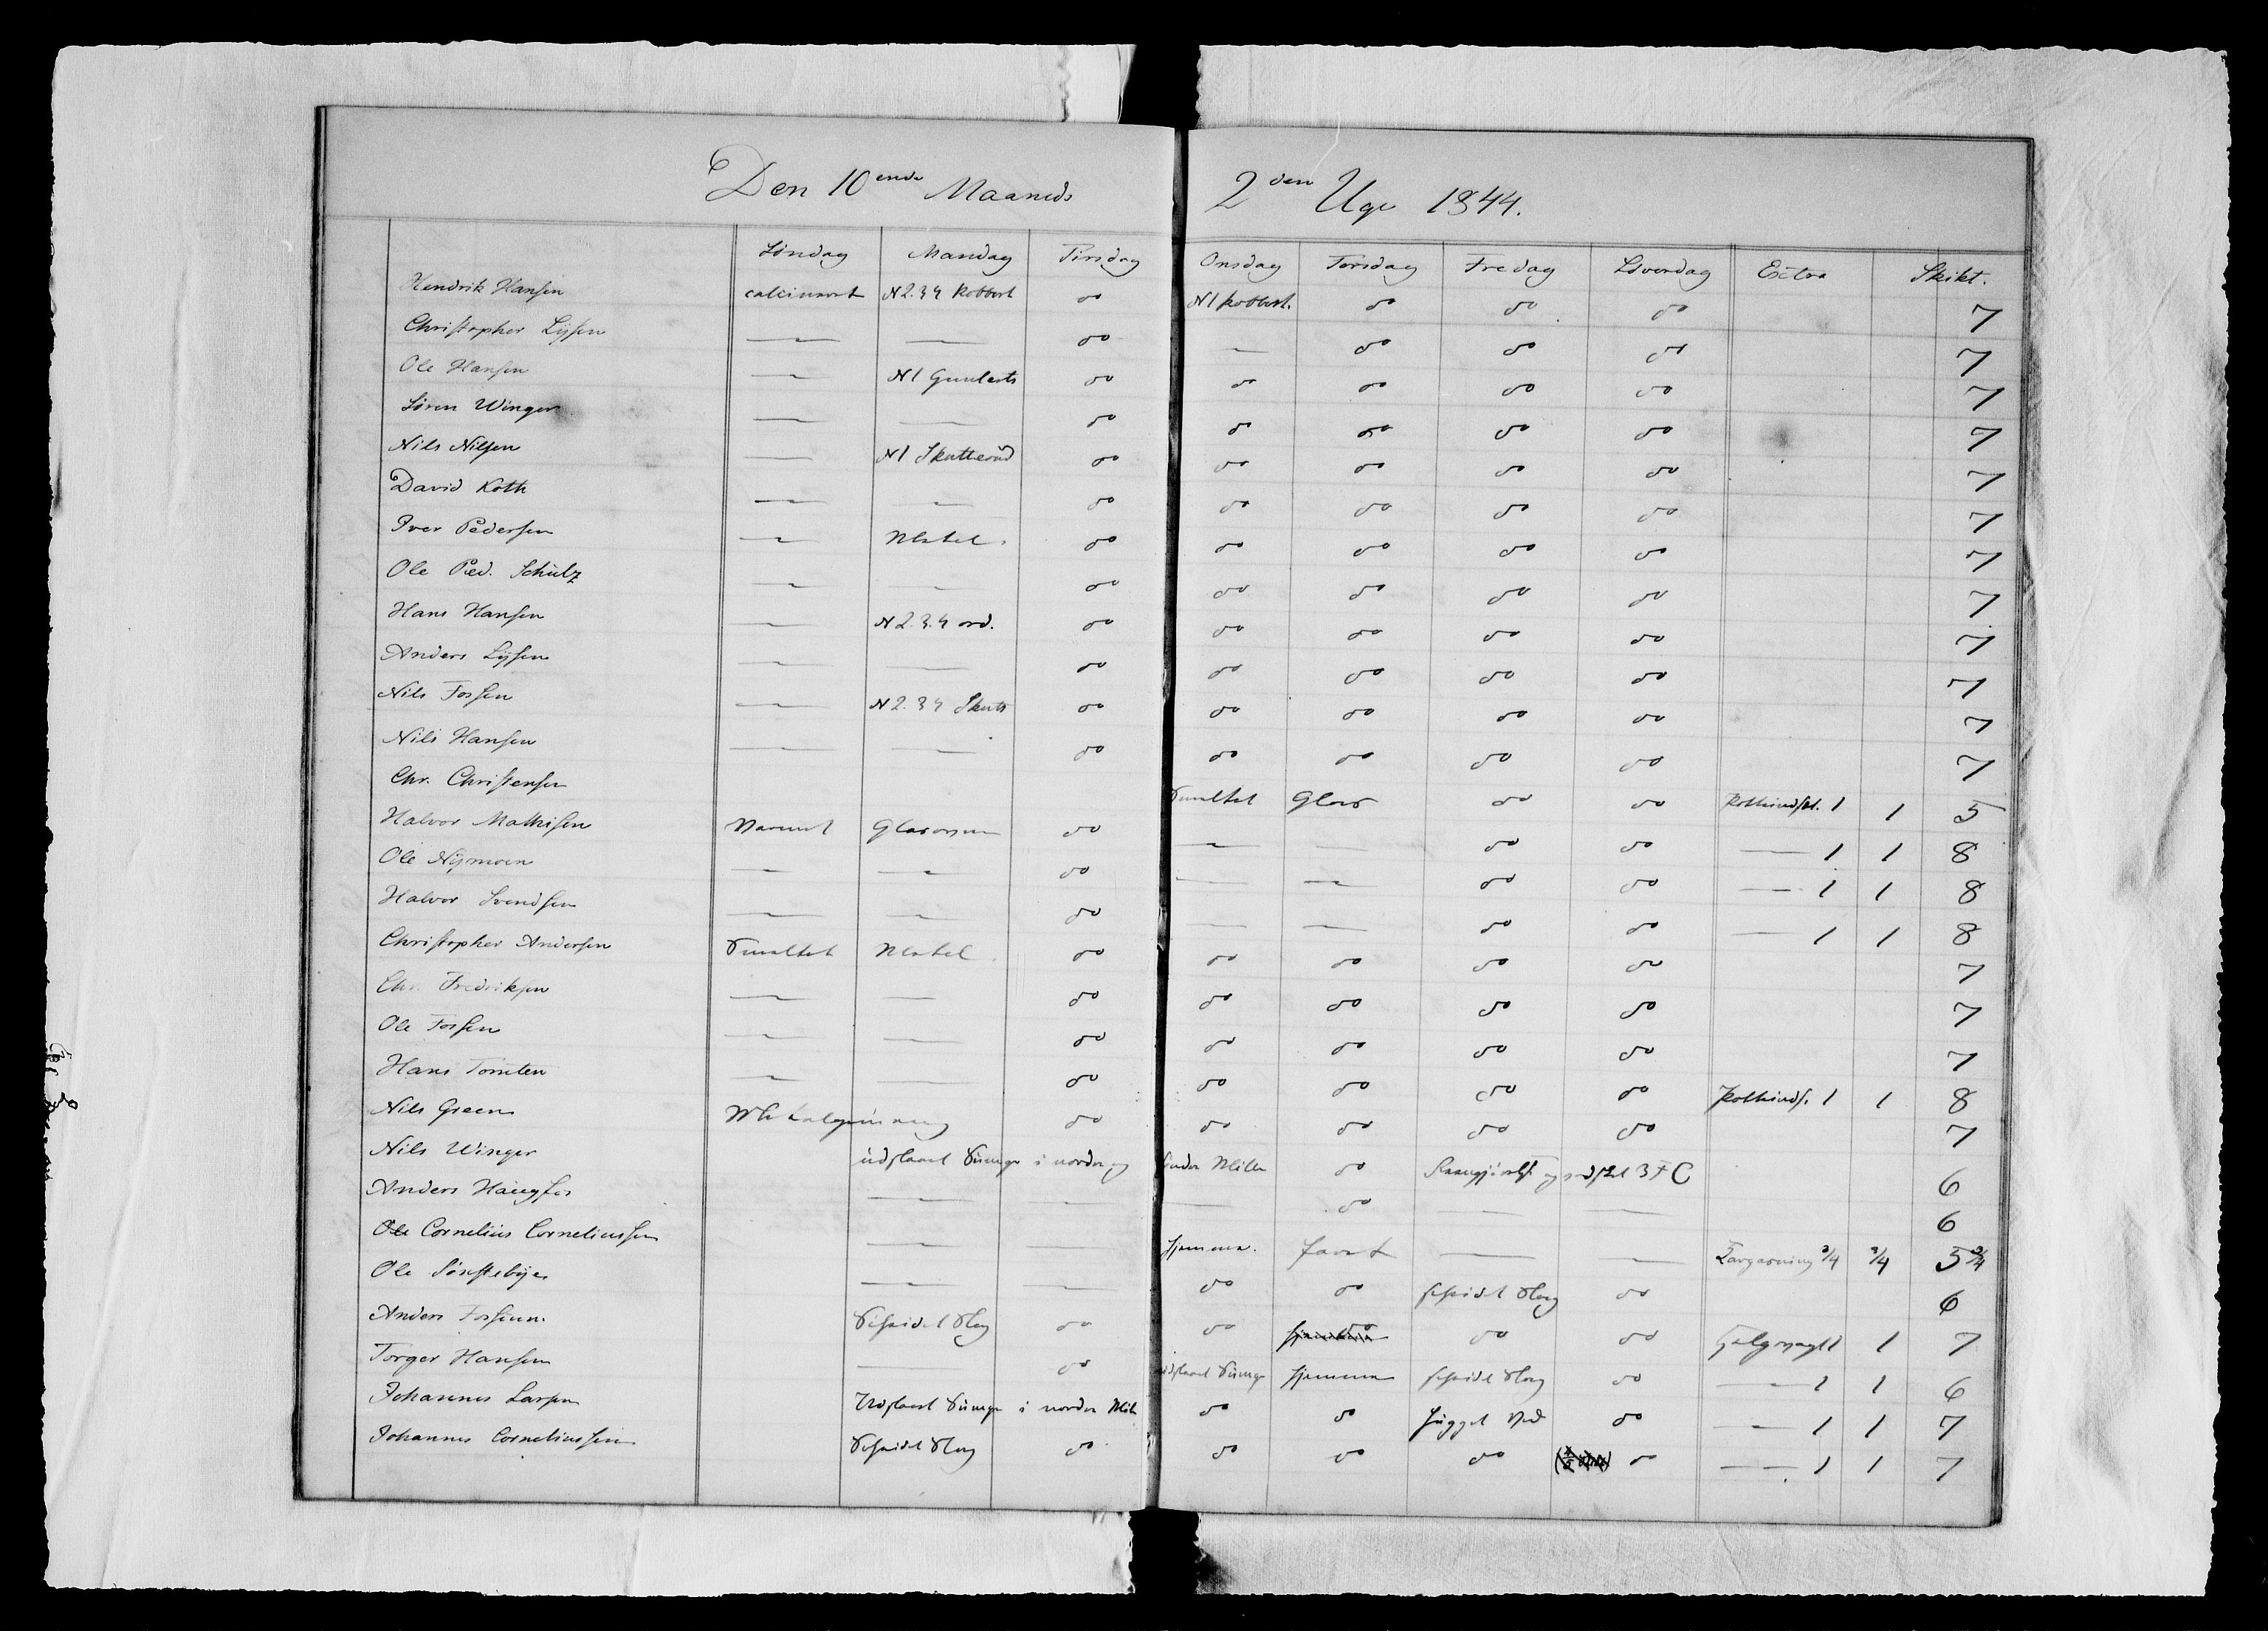 Den 10ende Maaneds 2den Uge 1844.
Søndag Mandag Tirsdag Onsdag Torsdag Fredag Løverdag Extra Skikt.
Hendrik Hansen calcineret N 2.3.4 Kobbert do N 1 Kobbert. do do do 7
Christopher Lysen — — do — do do do 7
Ole Hansen — N 1 do do do do do 7
Søren Winger — — do do do do do 7
Nils Nilsen — N 1 Skutterud do do do do do 7
David Koth — — do do do do do 7
Iver Pedersen — do do do do do 7
Ole Ped. Schulz — — do do do do do 7
Hans Hansen — N 2.3.4 ord. do do do do do 7
Anders Lysen — — do do do do do 7
Nils Fossen — N 2.3 4 Skutt do do do do do 7
Nils Hansen — — do do do do do 7
Chr. Christensen Smeltet Glas do do 1 1 5
Halvor Mathisen Varmet Glasovnen do — — do do — 1 1 8
Ole Nymoen — — do — — do do — 1 1 8
Halvor Svendsen — — do — — do do — 1 1 8
Christopher Andersen Smeltet do do do do do 7
Chr. Fredriksen — — do do do do do 7
Ole Fossen — — do do do do do 7
Hans Tomten — — do do do do do 1 1 8
Nils Green do do do do do 7
Nils Winger udslaaet i nordre og Søndre do 3 F C 6
Anders Haugfos — — — do — — 6
Ole Cornelius Corneliussen — — hjemme. — — 3/4 3/4 5 3/4
Ole Sønstebye — — do do scheidet Slag do 6
Anders Fossum. Scheidet Slag do do do do do 1 1 7
Torger Hansen — do udslaaet hjemme scheidet Slag do — 1 1 6
Johannes Larsen Udslaaet i nordre do do hugget Ved do — 1 1 7
Johannes Corneliussen Scheidet Slag do do do do do — 1 1 7